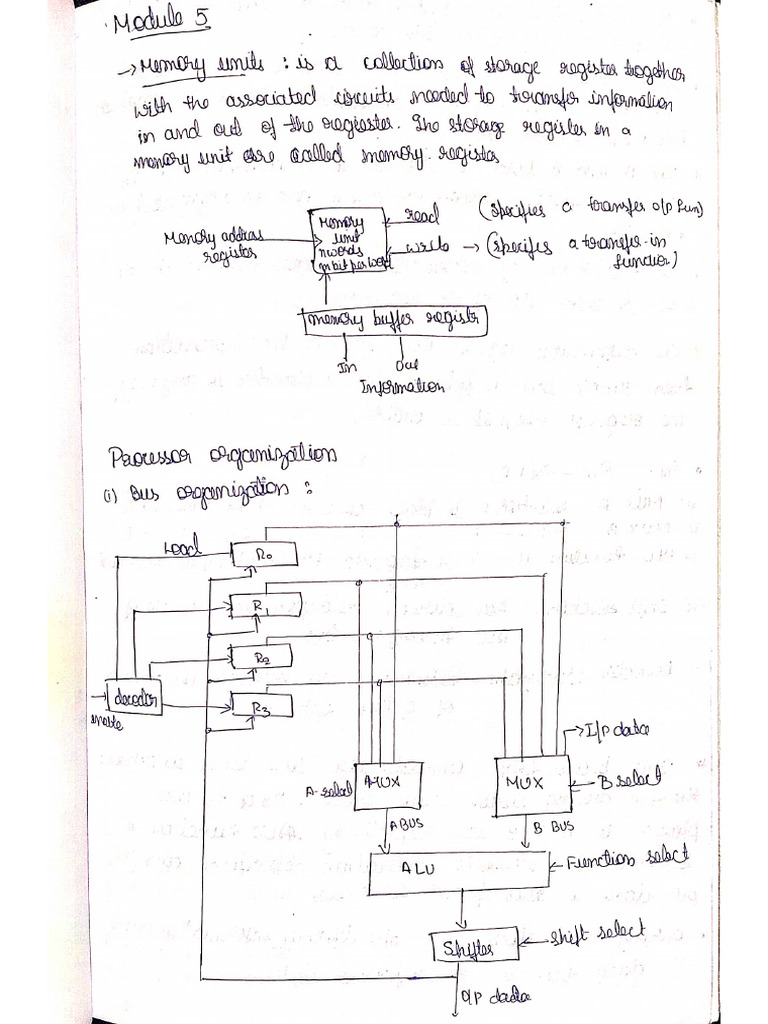 Module 5
→ Memory units : is a collection of storage register together
with the associated circuits needed to transfer information
in and out of the register. The storage register in a
memory unit are called memory register
Memory address
register
Memory
unit
n words
m bit per word
read (specifies a transfer o/p fun)
write → (specifies a transfer-in
function)
memory buffer registr
In Out
Information
Processor organization
(i) Bus organization :
Load
R0
R1
R2
R3
decoder
enable
I/p data
A-select
MUX
MUX
B select
A BUS
B BUS
ALU
Function select
Shifter
shift select
O/p data